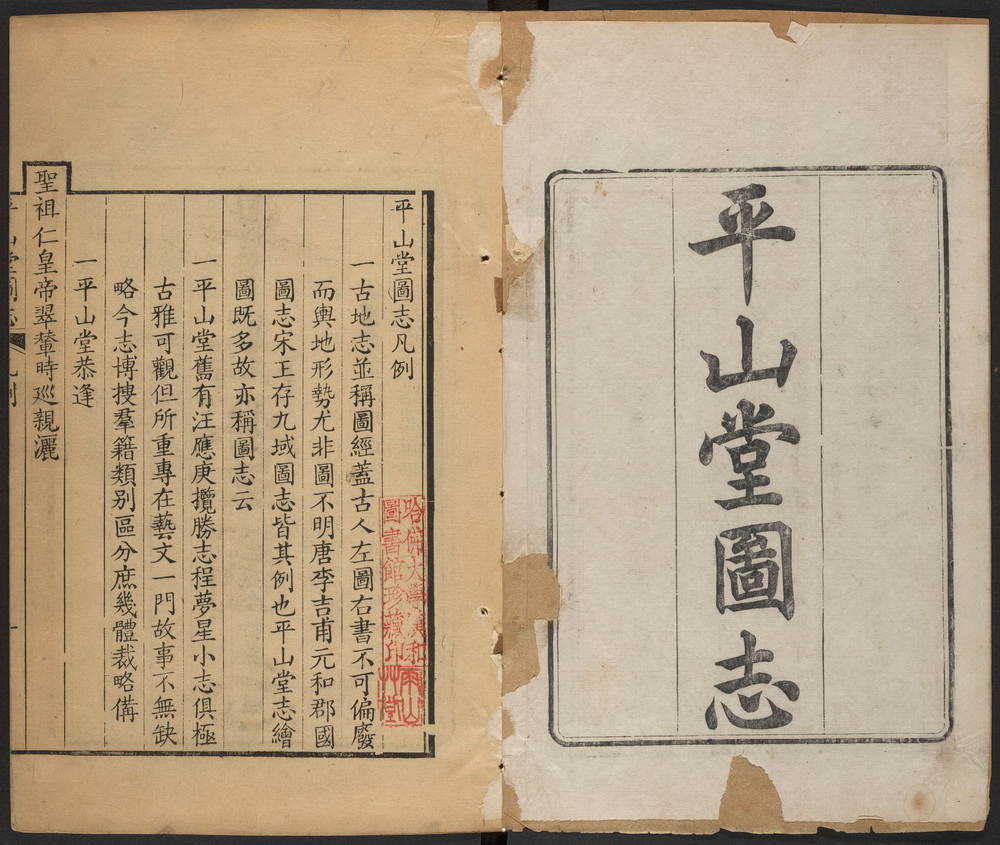 平山堂圖志
平山堂圖志凡例
一古地志並稱圖經蓋古人左圖右書不可偏廢
而輿地形勢尤非圖不明唐李吉甫元和郡國
圖志宋王存九域圖志皆其例也平山堂志繪
圖既多故亦稱圖志云
一平山堂舊有汪應庚攬勝志程夢星小志俱極
古雅可觀但所重專在藝文一門故事不無缺
略今志博搜羣籍類别區分庶幾體裁略備
一平山堂恭逢
聖祖仁皇帝翠輦時巡親灑
哈佛大學漢和
圖書館珍藏印